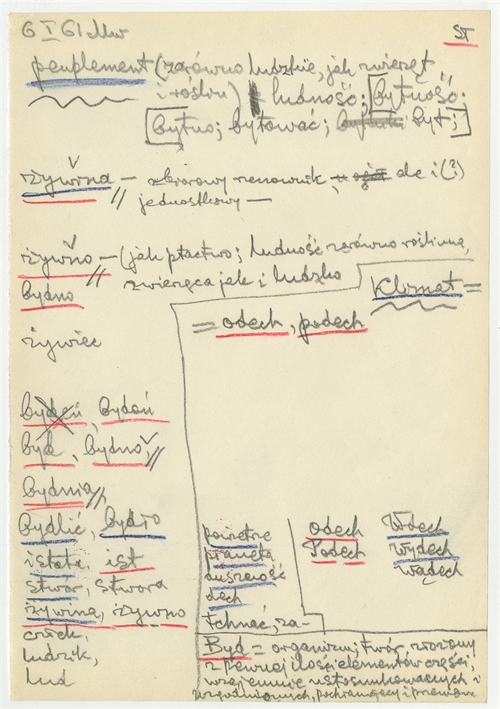 6 I 61 Mw
ST
peuplement (zarówno ludzkie, jak zwierzęt
i roślin) ludność; bytność;
[bytno; bytować; byt;]
żywina — zbiorowy rzeczownik, ale i (?)
jednostkowy —
żywno — (jak ptactwo; ludność zarówno roślinna,
bydno zwierzęca jak i ludzka
Klimat =
= odech, podech
żywiec
bydeń, bydoń
byd, bydno,
bydnia
bydlić, bydło
istota, ist
stwór, stwora
żywina, żywno
człek,
ludzik,
lud
powietrze
duszność
dech
tchnąć, za-
odech
Podech
Wdech
wydech
wądech
Byd = organizm; twór, złożony
z pewnej ilości elementów części,
wzajemnie ustosunkowanych i